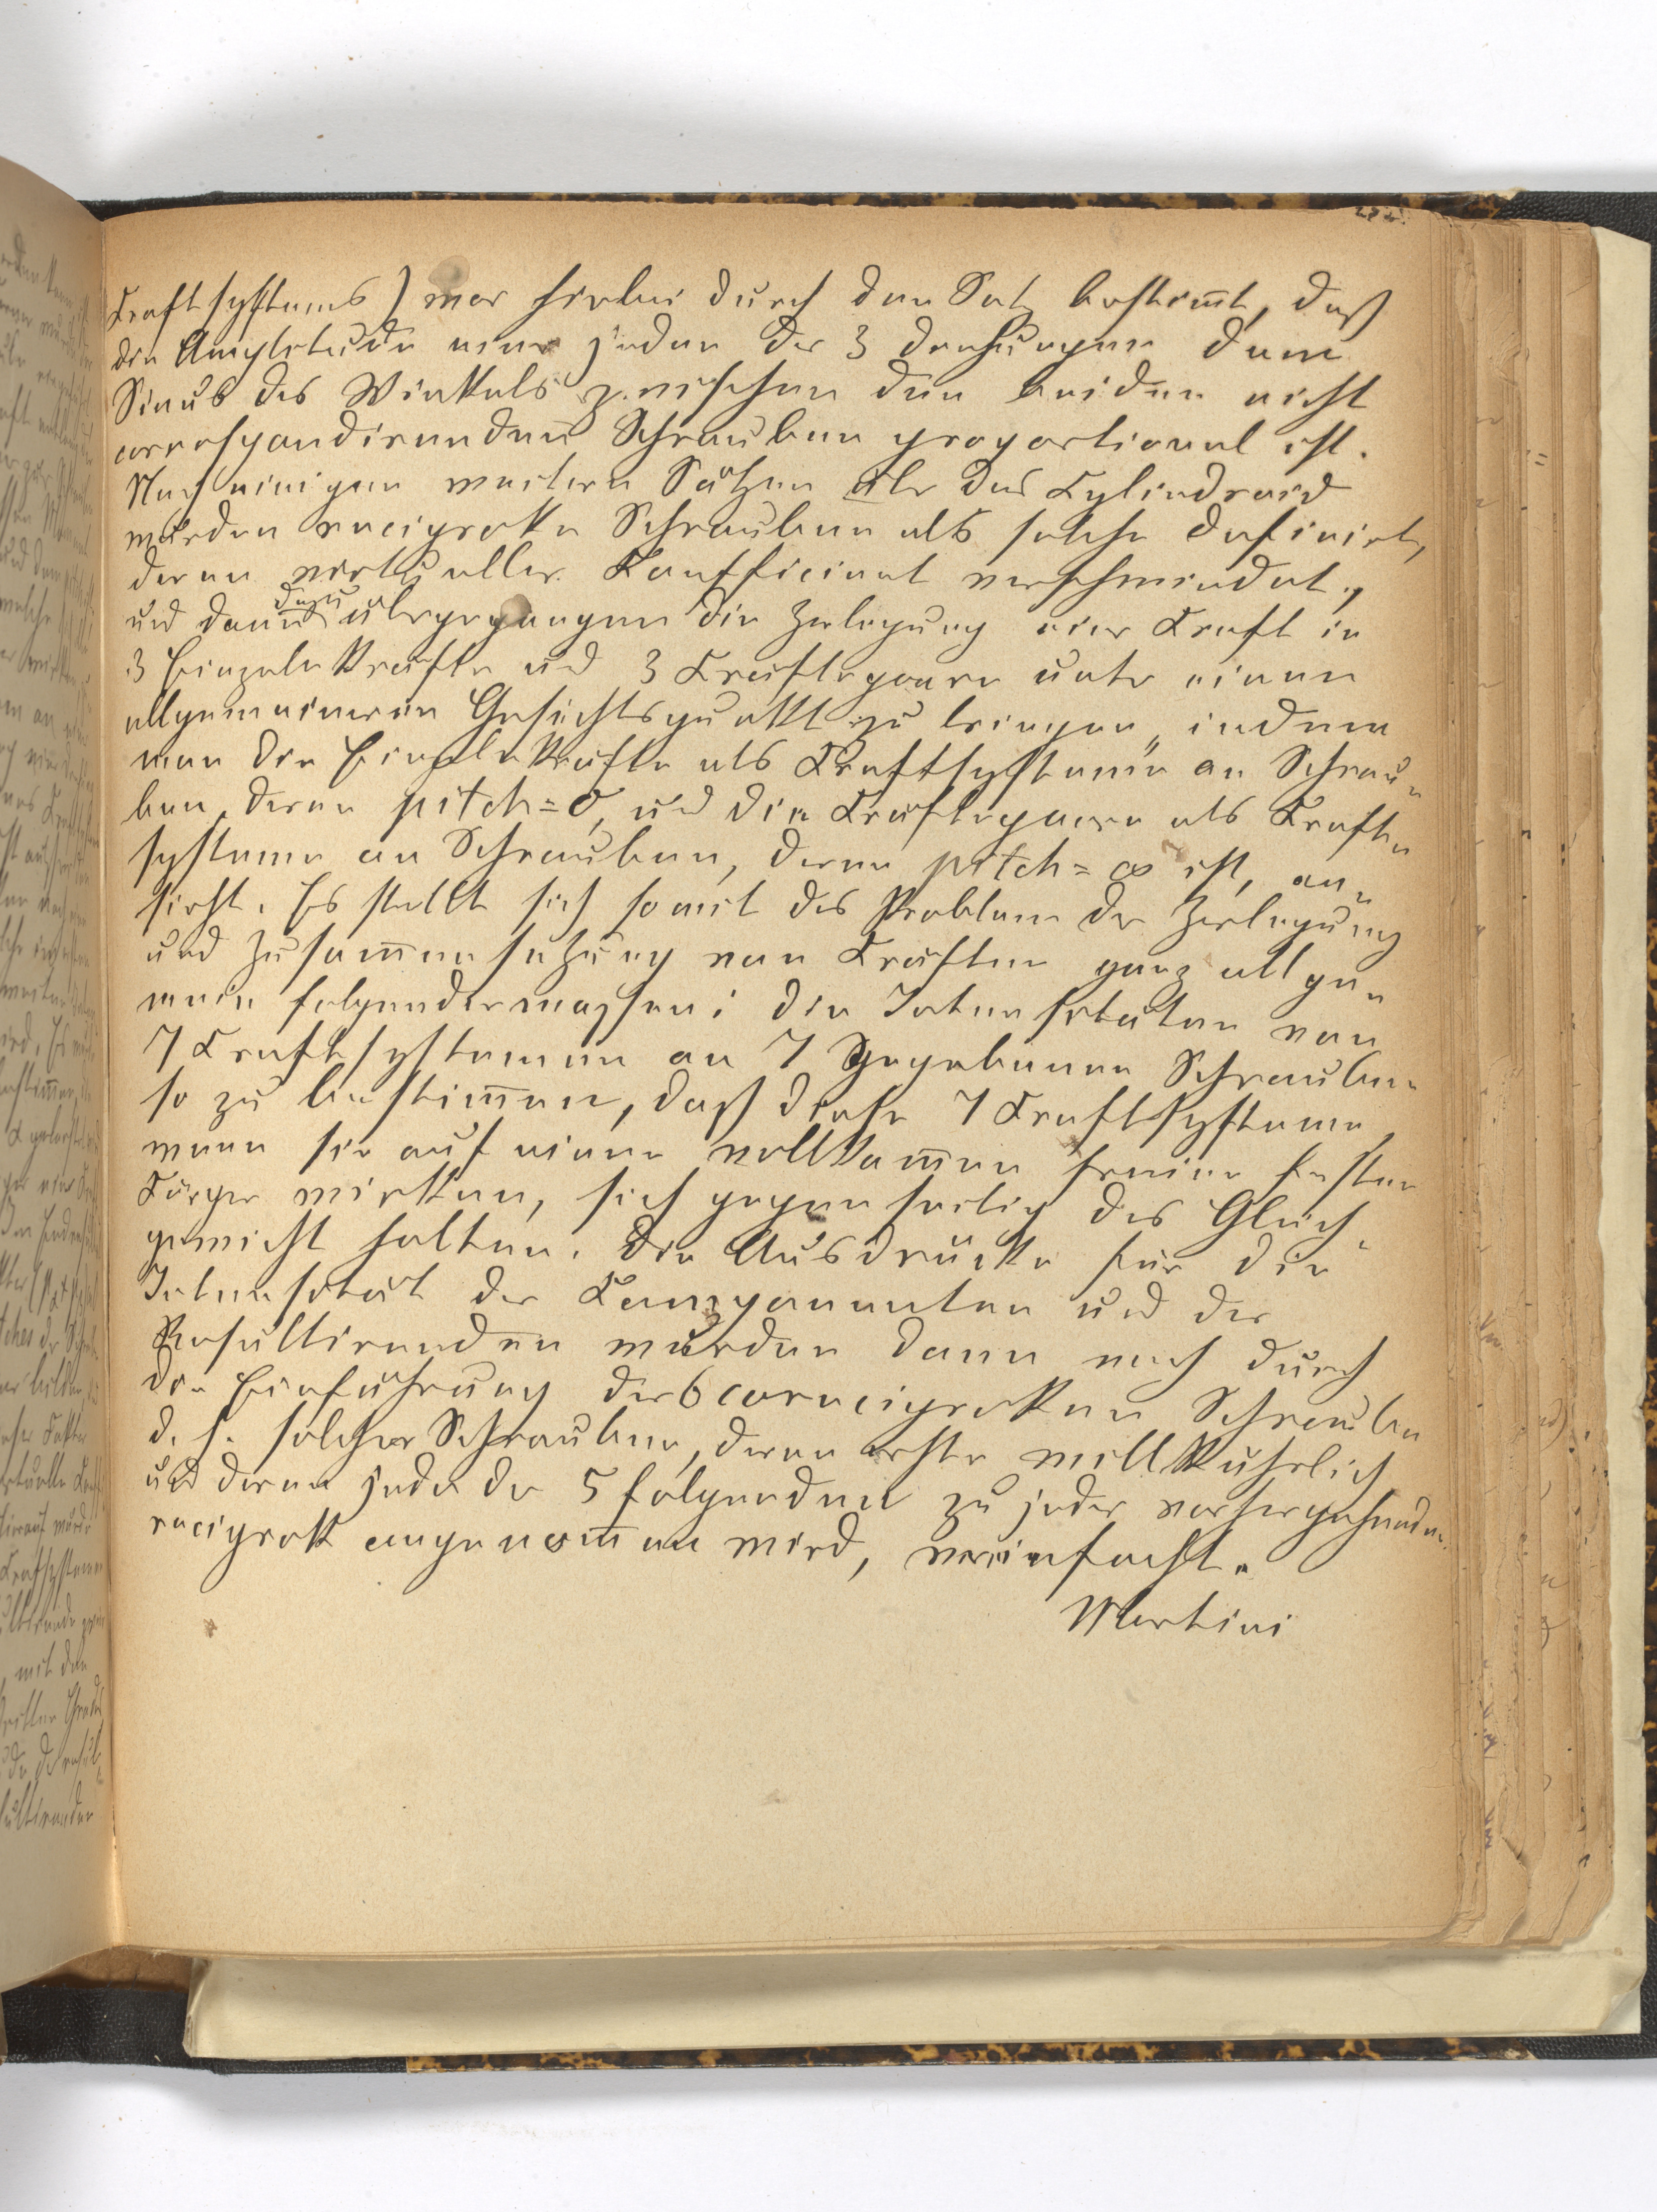 Kraftsystems) war hierbei durch den Satz bestim̅t, daß
die Amplitude einer jeden der 3 Drehungen dem
Sinus des Winkels zwischen den beiden nicht
correspondirenden Schrauben proportional ist.
Nach einigen weitern Sätzen über das Cylindroid
wurden reciproke Schrauben als solche definirt,
deren virtueller Coefficient verschwindet,
und dann dazu übergegangen die Zerlegung einer Kraft in
3 Einzelnkräfte und 3 Kräftepaare unter einen
allgemeineren Gesichtspunkt zu bringen, indem
man die Einzelnkräfte als Kraftsysteme an Schrau-
ben, deren pitch=0, und die Kräftepaare als Kraft-
systeme an Schrauben, deren pitch=∞ ist, an-
sieht. Es stellt sich somit das Problem der Zerlegung
und Zusam̅ensetzung von Kräften ganz allge-
mein folgendermassen: die Intensitäten von
7 Kraftsystemen an 7 gegebenen Schrauben
so zu bestim̅en, daß diese 7 Kraftsysteme,
wenn sie auf einen vollkom̅en freien festen
Körper wirken, sich gegenseitig das Gleich-
gewicht halten. Die Ausdrücke für die
Intensität der Componenten und der
Resultirenden wurden dann noch durch
die Einführung der 6 coreciproken Schrauben
d. h. solcher Schrauben, deren erste willkührlich
und deren jede der 5 folgenden zu jeder vorhergehenden
reciprok angenom̅en wird, vereinfacht.
Martini